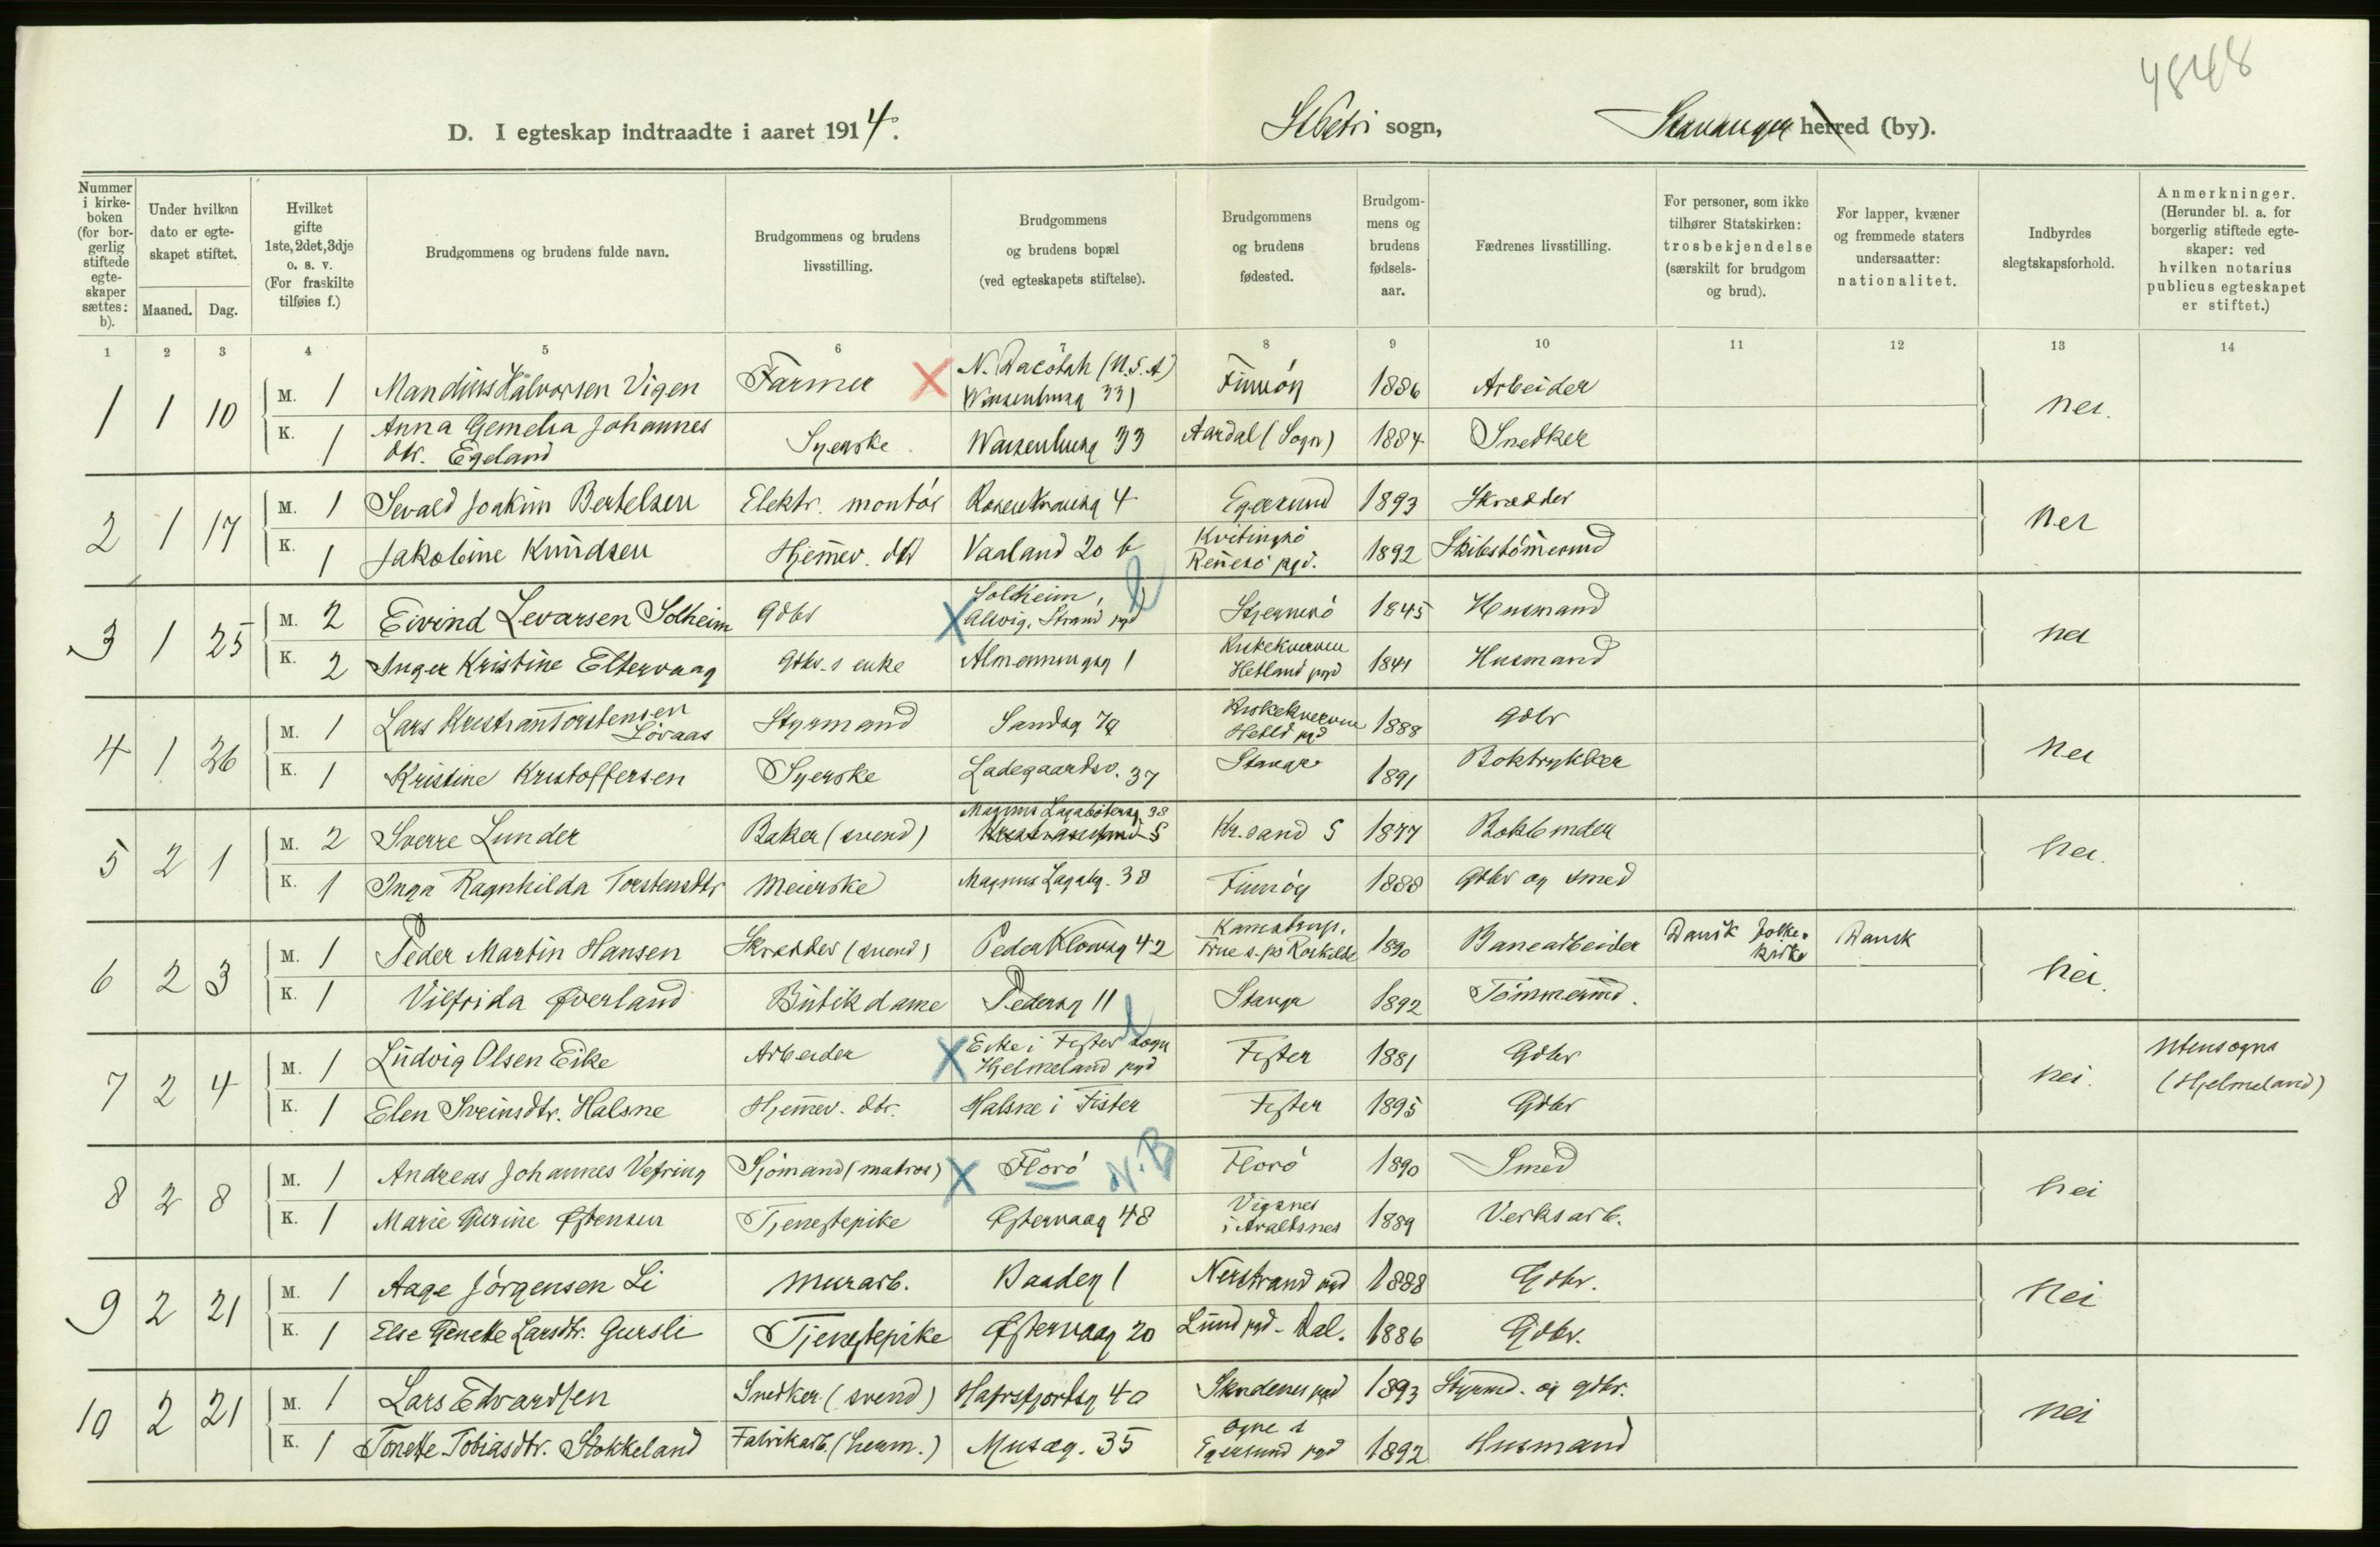 4848
D. I egteskap indtraadte i aaret 1914.
St Petri sogn,
Stavanger herred (by).
Nummer i kirkeboken (for borgerlig stiftede egteskaper sættes: b).
Under hvilken dato er egteskapet stiftet.
Maaned. Dag.
Hvilket gifte 1ste, 2det, 3dje o. s. v. (For fraskilte tilføies f.)
Brudgommens og brudens fulde navn.
Brudgommens og brudens livsstilling.
Brudgommens og brudens bopæl (ved egteskapets stiftelse).
Brudgommens og brudens fødested.
Brudgommens og brudens fødselsaar.
Fædrenes livsstilling.
For personer, som ikke tilhører Statskirken: trosbekjendelse (særskilt for brudgom og brud).
For lapper, kvæner og fremmede staters undersaatter: nationalitet.
Indbyrdes slegtskapsforhold.
Anmerkninger. (Herunder bl. a. for borgerlig stiftede egteskaper: ved hvilken notarius publicus egteskapet er stiftet.)
1 2 3 4 5 6 7 8 9 10 11 12 13 14
1 1 10 M. 1 Mandius Halvorsen Vigen Farmer X N. Dacotah (U.S.A) 33) Finnöy 1886 Arbeider nei.
K. 1 Anna Gemelia Johannes dtr. Egeland Syerske 33 Aardal (Sogn) 1884 Snedker
2 1 17 M. 1 Sevald Joakim Bertelsen Elektr. montör Rosenkransg 4 Egersund 1893 Skrædder nei
K. 1 Jakobine Knudsen Hjemmev. dtr Vaaland 20 b Kvitingsö Rennesö pgd. 1892 Skibstömmermd
3 1 25 M. 2 Eivind Levarsen Solheim Gdbr X Solheim, Strand pgd Stjernerö 1845 Husmand nei
K. 2 Inger Kristine Eltervaag Gdbr.s enke Almenningsg 1 Hetland pgd 1841 Husmand
4 1 26 M. 1 Lars Kristian Torstensen Lövaas Styrmand Sandsg 7a Hetld pgd 1888 Gdbr nei
K. 1 Kristine Kristoffersen Syerske Ladegaardsv. 37 Stavgr 1891 Boktrykker
5 2 1 M. 2 Sverre Lunder Baker (svend) Magnus Lagabötersg 38 Kr.sand S 1877 Bokbinder nei.
K. 1 Inga Ragnhilda Torstensdtr Meierske Magnus Lagabg. 38 Finnöy 1888 Gdbr og smed
6 2 3 M. 1 Peder Martin Hansen Skrædder (svend) Peder Klowsg 42 Kamstrup, Roskilde 1890 Banearbeider Dansk folkekirke Dansk nei.
K. 1 Vilfrida Øverland Butikdame Pedersg 11 Stavgr 1892 Tömmermd.
7 2 4 M. 1 Ludvig Olsen Eike Arbeider X Eike i Fister sogn Hjelmeland pgd Fister 1881 Gdbr nei. Utensogns (Hjelmeland)
K. 1 Elen Sveinsdtr. Halsne Hjemmev. dtr. Halsne i Fister Fister 1895 Gdbr
8 2 8 M. 1 Andreas Johannes Vefring Sjömand (matros) X Florö N.B Florö 1890 Smed nei
K. 1 Marie Gurine Østensen Tjenestepike Østervaag 48 Vigsnes i Avaldsnes 1889 Verksarb.
9 2 21 M. 1 Aage Jörgensen Li Murarb. Baadeg 1 Nerstrand pgd 1888 Gdbr. Nei
K. 1 Else Genette Larsdtr. Gursli Tjenestepike Østervaag 20 Lund pgd - Dal. 1886 Gdbr.
10 2 21 M. 1 Lars Edvardsen Snedker (svend) Hafrsfjordsg 40 Skudenes pgd 1893 Styrmd. og gdbr. nei
K. 1 Tonette Tobiasdtr. Stokkeland Fabrikarb. (herm.) Musæg. 35 Ogne s Egersund pgd 1892 Husmand